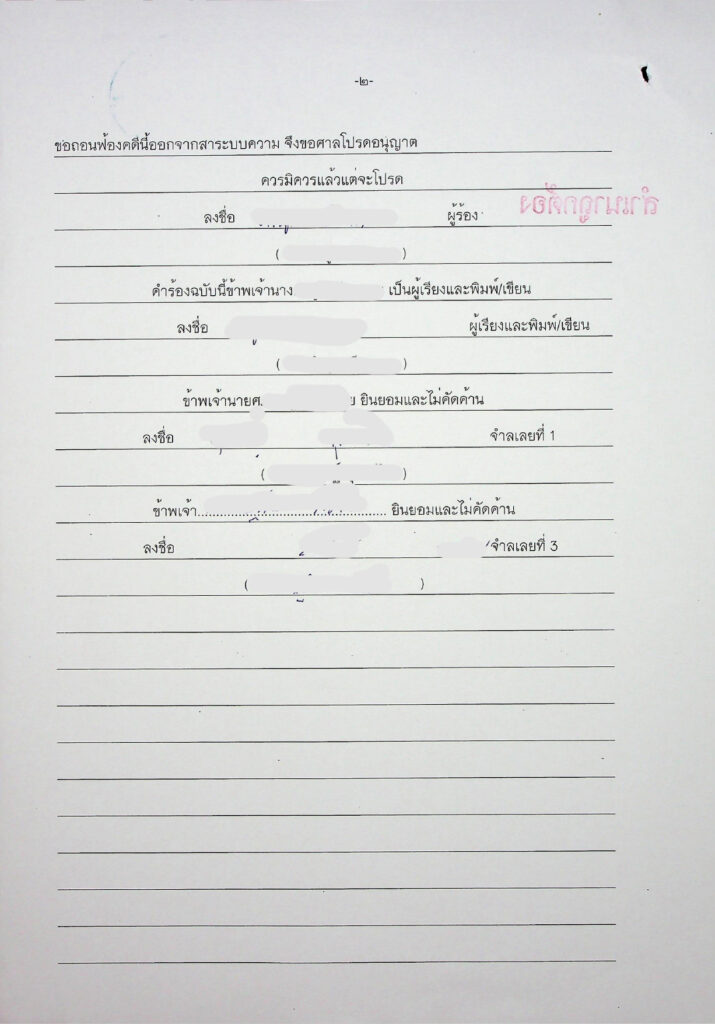 -๒-
ขอถอนฟ้องคดีนี้ออกจากสาระบบความ จึงขอศาลโปรดอนุญาต
ควรมิควรแล้วแต่จะโปรด
ลงชื่อ ผู้ร้อง
สำเนาถูกต้อง
( )
คำร้องฉบับนี้ข้าพเจ้านาง เป็นผู้เรียงและพิมพ์/เขียน
ลงชื่อ ผู้เรียงและพิมพ์/เขียน
( )
ข้าพเจ้านายศ. ย ยินยอมและไม่คัดค้าน
ลงชื่อ จำเลยที่ 1
( )
ข้าพเจ้า................................................ ยินยอมและไม่คัดค้าน
ลงชื่อ จำเลยที่ 3
( )